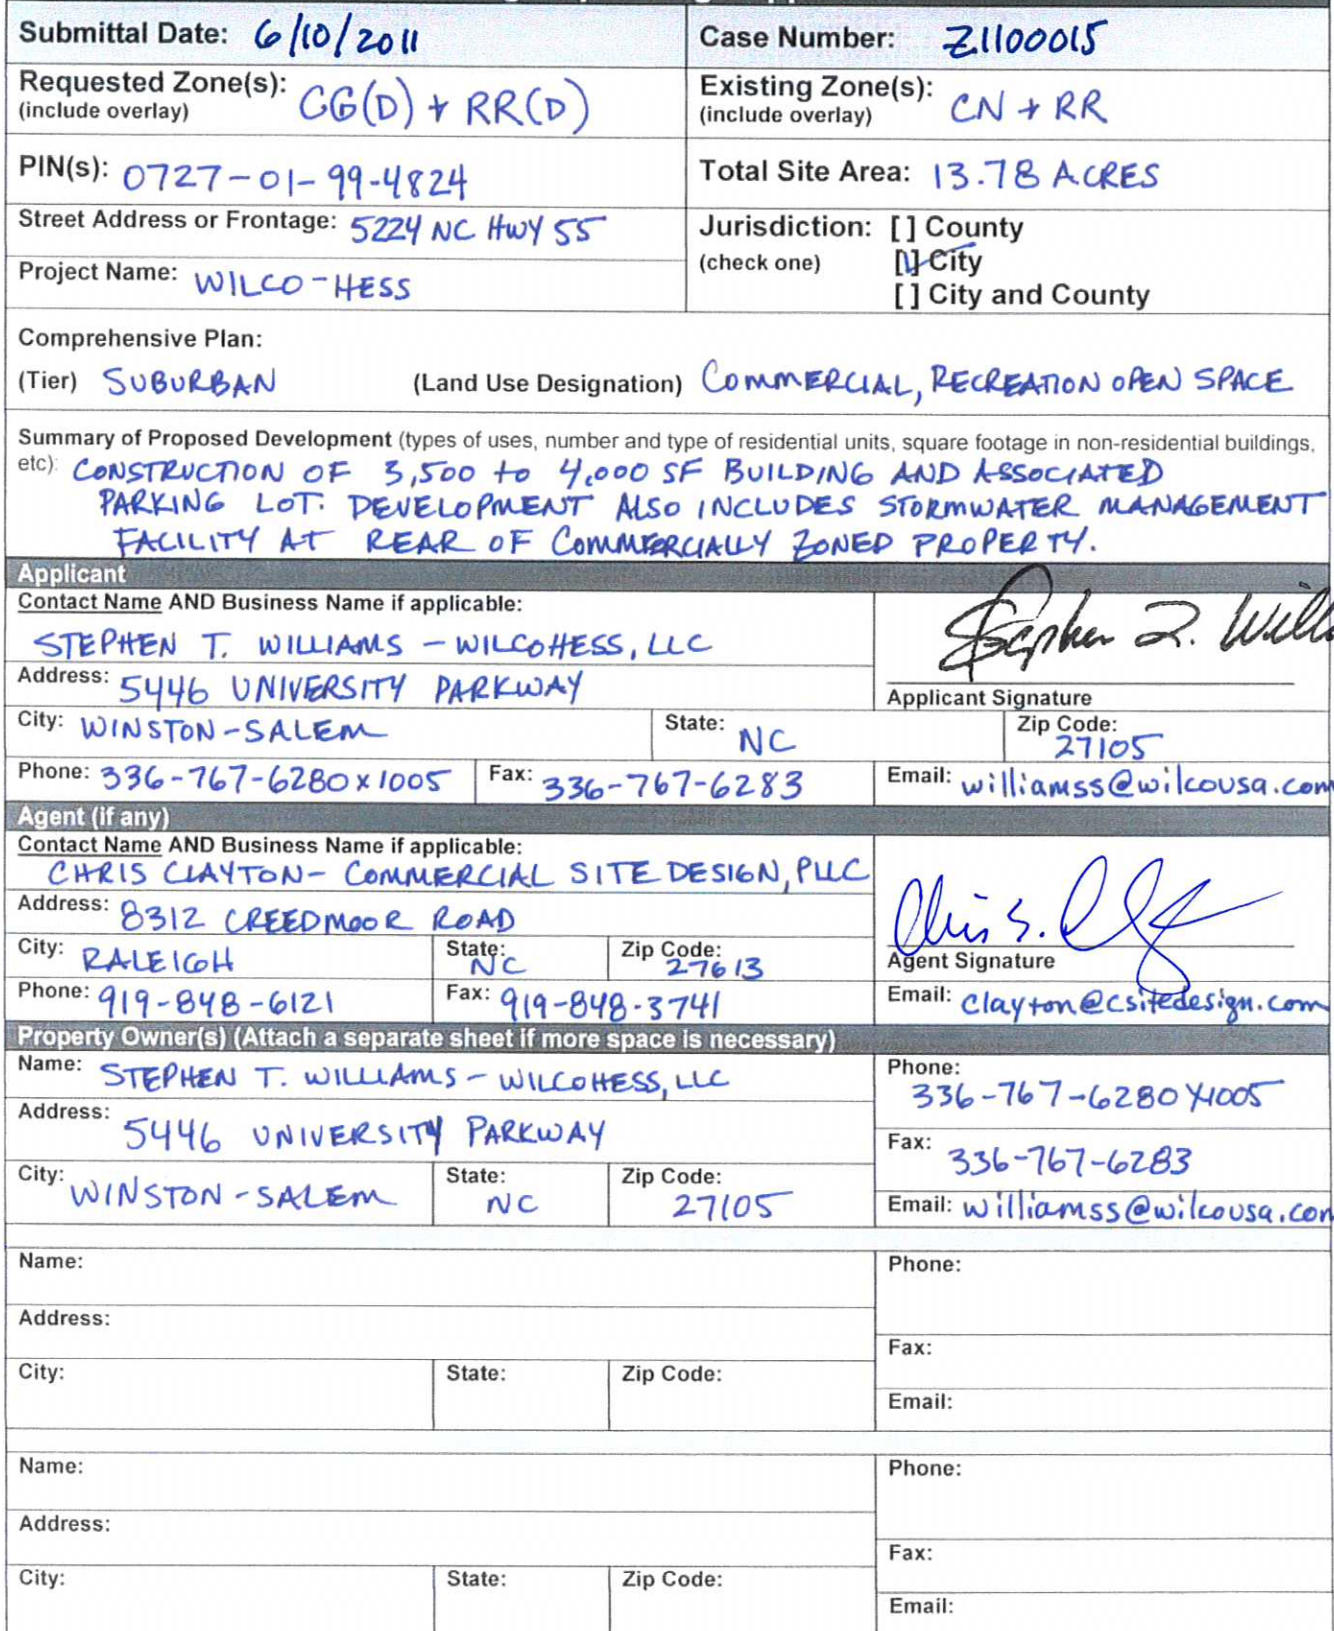 Submittal Date: 6/10/2011
Case Number: Z1100015
Requested Zone(s): CG(D) + RR(D)
(include overlay)
Existing Zone(s): CN + RR
(include overlay)
PIN(s): 0727-01-99-4824
Total Site Area: 13.78 ACRES
Street Address or Frontage: 5224 NC HWY 55
Project Name: WILCO-HESS
Jurisdiction: [ ] County
(check one) [✓] City
[ ] City and County
Comprehensive Plan:
(Tier) SUBURBAN (Land Use Designation) COMMERCIAL, RECREATION OPEN SPACE
Summary of Proposed Development (types of uses, number and type of residential units, square footage in non-residential buildings,
etc): CONSTRUCTION OF 3,500 to 4,000 SF BUILDING AND ASSOCIATED
PARKING LOT. DEVELOPMENT ALSO INCLUDES STORMWATER MANAGEMENT
FACILITY AT REAR OF COMMERCIALLY ZONED PROPERTY.
Applicant
Contact Name AND Business Name if applicable:
STEPHEN T. WILLIAMS - WILCOHESS, LLC
Address: 5446 UNIVERSITY PARKWAY
Applicant Signature
City: WINSTON-SALEM State: NC Zip Code: 27105
Phone: 336-767-6280x1005 Fax: 336-767-6283 Email: williamss@wilcousa.com
Agent (if any)
Contact Name AND Business Name if applicable:
CHRIS CLAYTON- COMMERCIAL SITE DESIGN, PLLC
Address: 8312 CREEDMOOR ROAD
City: RALEIGH State: NC Zip Code: 27613
Agent Signature
Phone: 919-848-6121 Fax: 919-848-3741 Email: clayton@csitedesign.com
Property Owner(s) (Attach a separate sheet if more space is necessary)
Name: STEPHEN T. WILLIAMS - WILCOHESS, LLC
Phone: 336-767-6280 X1005
Address: 5446 UNIVERSITY PARKWAY
Fax: 336-767-6283
City: WINSTON-SALEM State: NC Zip Code: 27105
Email: williamss@wilcousa.com
Name:
Phone:
Address:
Fax:
City: State: Zip Code:
Email:
Name:
Phone:
Address:
Fax:
City: State: Zip Code:
Email: